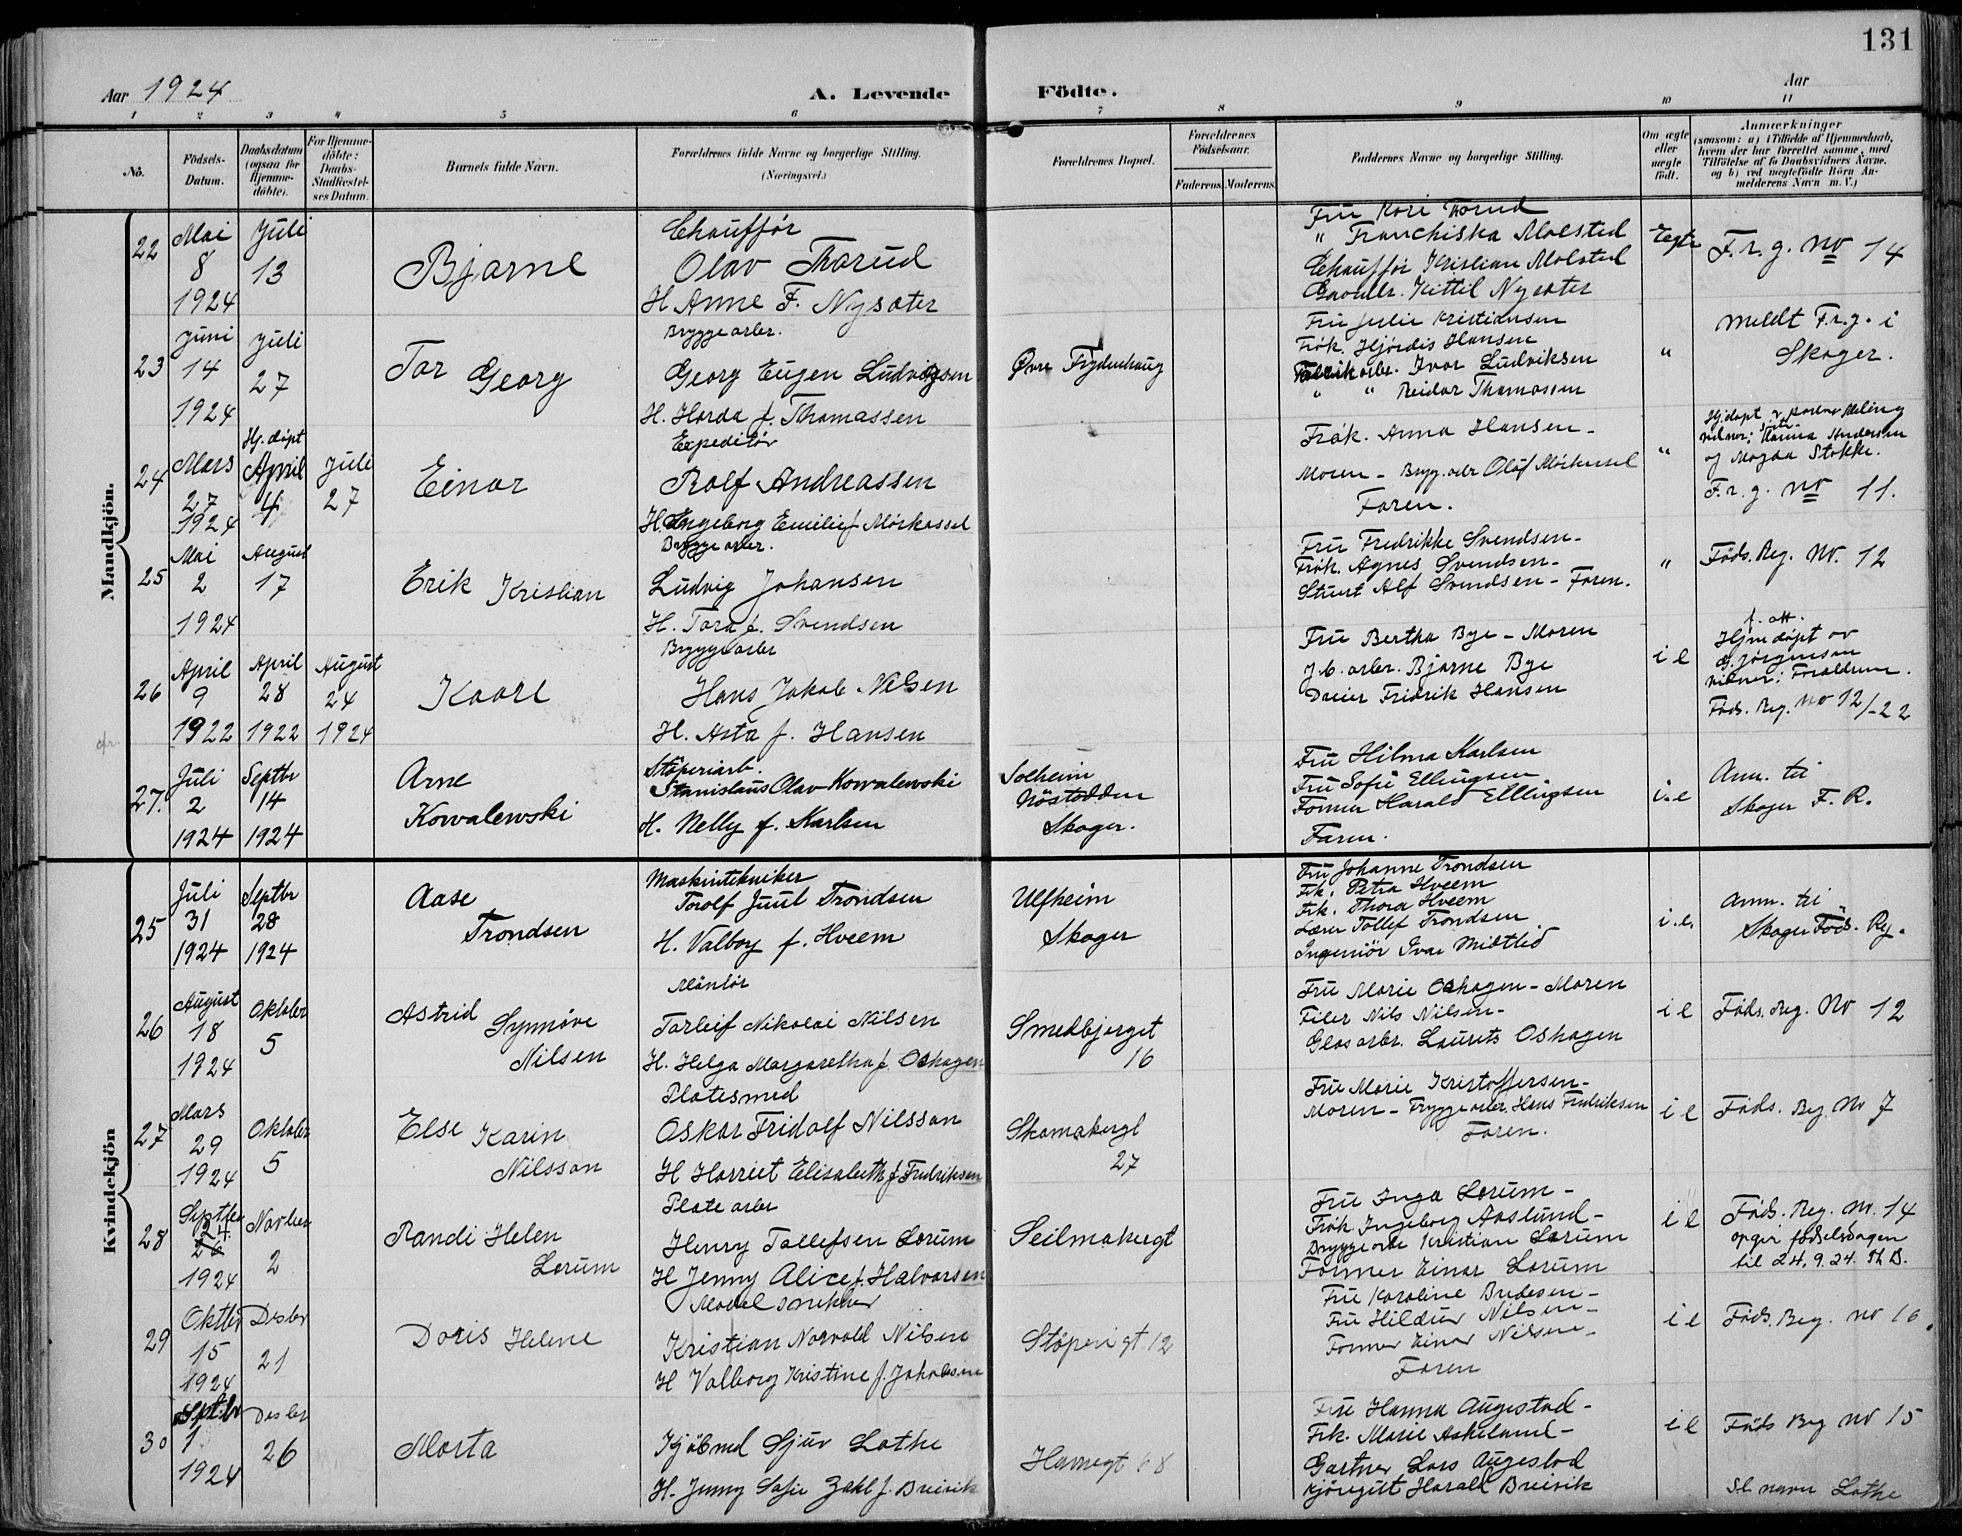 131
Aar 1924
A. Levende Födte.
Aar
1 2 3 4 5 6 7 8 9 10 11
No.
Födsels-Datum.
Daabsdatum (ogsaa for Hjemme-döbte).
For Hjemme-döbte: Daabs-Stadfæstel-ses Datum.
Barnets fulde Navn.
Forældrenes fulde Navne og borgerlige Stilling.
(Næringsvei.)
Forældrenes Bopæl.
Forældrenes Födselsaar.
Faderens. Moderens.
Faddernes Navne og borgerlige Stilling.
Om ægte eller uægte födt.
Anmærkninger
(saasom: a) i Tilfælde af Hjemmedaab, hvem der har forrettet samme, med Tilföielse af to Daabsvidners Navne. og b) ved uægtefödte Börn An-melderens Navn m. V.)
Mandkjön.
22
Mai 8 1924
Juli 13
Bjarne
Chauffør
Olav Thorud
H Anne F. Nysæter
Fru Kari Torud
" Franchiska Molstad
Chauffør Kristian Molstad
Kittil Nysæter
Egte
F. r. g. No 14
23
Juni 14 1924
Juli 27
Tor Georg
Bryggearber.
Georg Eugen Ludvigsen
H. Harda f. Thomassen
Øvre Frydenhaug
Fru Julie Kristiansen
Frøk. Hjørdis Hansen
Fabrikarbr. Ivar Ludviksen
" " Reidar Thomassen
"
Meldt F.r.g. i
Skoger.
24
Mars 27 1924
Hj. døpt April 4
Juli 27
Einar
Expeditør
Rolf Andreassen
H. Ingeborg Emilie f. Mørkassel
Frøk. Anna Hansen -
Moren - Bryg. arbr Olaf Mørkassel
Faren.
"
og Magda Stokke.
F. r. g. No 11.
25
Mai 2 1924
August 17
Erik Kristian
Brygge arber.
Ludvig Johansen
H. Tora f. Svendsen
Fru Fredrikke Svendsen -
Frøk. Agnes Svendsen -
Stuert Alf Svendsen - Faren.
"
Føds. Reg. No. 12
26
April 9 1922
April 28 1922
August 24 1924
Kaare
Bryggearber
Hans Jakob Nilsen
H. Asta f. Hansen
Fru Bertha Bye - Moren
J.b. arber. Bjarne Bye
Fridrik Hansen
i e
Hjmdøpt av
G. Jørgensen
vidner: Foreldrene.
Føds. Reg. No 12/-22
27.
Juli 2 1924
Septbr 14 1924
Arne
Kowalewski
Støperiarb.
Stanislaus Olav Kowalewski
H. Nelly f. Karlsen
Solheim
Nøstodden
Skoger.
Fru Hilma Karlsen
Fru Sofie Ellingsen
Former Harald Ellingsen
Faren.
i.e
Anm. til
Skoger F. R.
Kvindekjön
25
Juli 31 1924
Septbr 28 1924
Aase
Trondsen
Maskintekniker
Torolf Juul Trondsen
H. Valbor f. Hveem
Ulfheim
Skoger
Fru Johanne Trondsen
Frk. Petra Hveem
Frk. Thora Hveem
Lærer Tollef Trondsen
Ingeniör Ivar Midtlid
i.e.
Anm. til
Skoger Föds. Reg.
26
August 18 1924
Oktober 5
Astrid Synnøve
Nilsen
Montør
Torleif Nikolai Nilsen
H. Helga Margaretha f. Oshagen
Smedbjerget
16
Fru Marie Oshagen - Moren
Filer Nils Nilsen -
Glasarbr. Laurits Oshagen
i e
Føds. Reg. No 12
27
Mars 29 1924
Oktober 5
Else Karin
Nilsson
Platesmed
Oskar Fridolf Nilsson
H Harriet Elisabeth f. Fredriksen
Skomakergt
27
Fru Marie Kristoffersen -
Moren - Bryggearber. Hans Fredriksen
Faren.
i e
Føds. Reg No 7
28
Septber 24 1924
Novber 2
Randi Helen
Lerum
Plate arber
Henry Tollefsen Lerum
H Jenny Alice f. Halvorsen
Seilmakergt
Fru Inga Lerum -
Frøk. Ingeborg Aaslund -
Brygge arbr Kristian Lerum
Former Einar Lerum
i e
Føds. Reg. No. 14
opgir fødselsdagen
til 24.9.24. Th B.
29
Oktber 15 1924
Desbr 21
Doris Helene
Model snekker
Kristian Norvald Nilsen
H Valborg Kristine f. Jakobsen
Støperigt 12
Fru Karoline Bredesen -
Fru Hildur Nilsen -
Former Einar Nilsen -
Faren
i e
Føds. Reg. No 16.
30
Septbr 1 1924
Desber 26
Marta
Kjøbmd Sjur Lothe
H. Jenny Sofie Zakl f. Breivik
Havnegt 68
Fru Hanna Augestad -
Frk. Marie Askeland -
Gartner Lars Augestad
Harald Breivik
i e
Føds Reg No 15
Sl navn Lothe